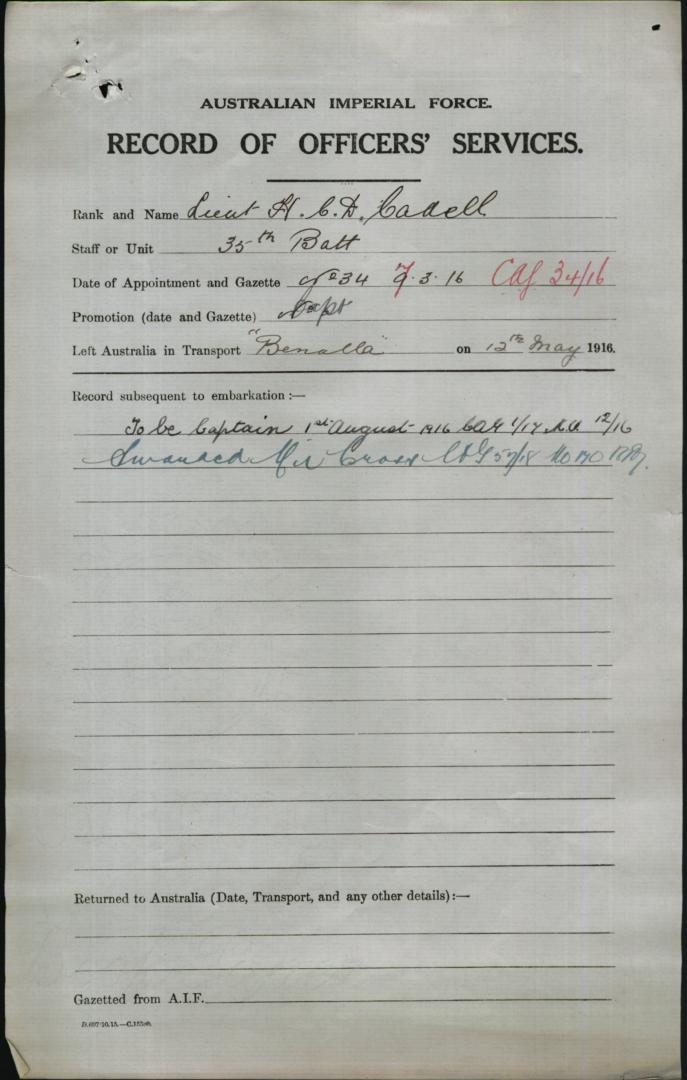 AUSTRALIAN IMPERIAL FORCE.
RECORD OF OFFICERS' SERVICES.
Rank and Name Lieut H. C. D. Cadell
Staff or Unit 35th Batt
Date of Appointment and Gazette 34 9.3.16 CAG 34/16
Promotion (date and Gazette) Capt
Left Australia in Transport "Benalla" on 12th May 1916.
Record subsequent to embarkation:—
To be Captain 1st August 1916 CAG 1/17 12/16
Awarded Mil Cross CAG 57/18
Returned to Australia (Date, Transport, and any other details):—
Gazetted from A.I.F.
D.697/10.15.—C.15580.